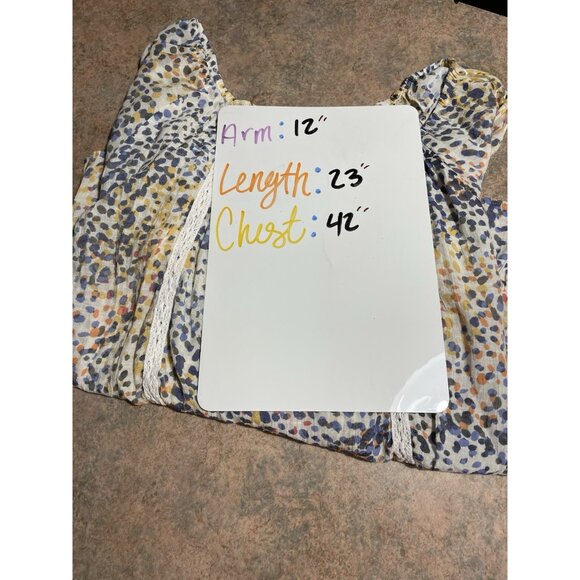 Arm: 12"
Length: 23"
Chest: 42"